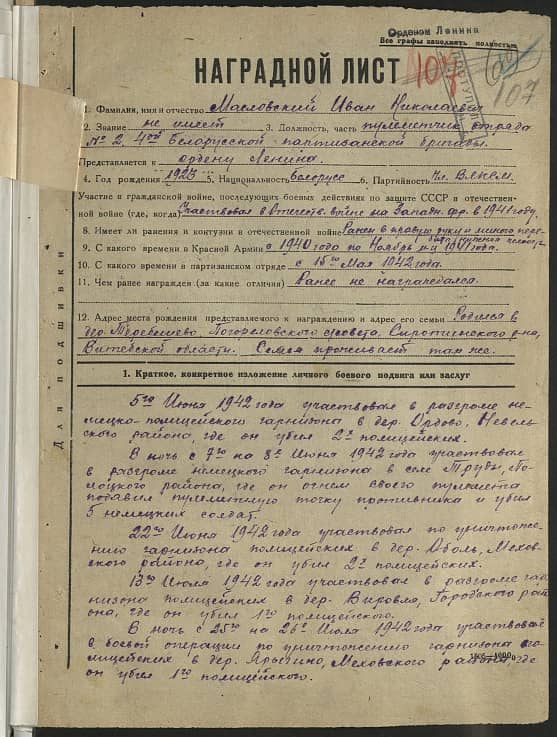 Орденом Ленина
Все графы заполнять полностью
НАГРАДНОЙ ЛИСТ 107
107
1. Фамилия, имя и отчество Масловский Иван Николаевич
2. Звание не имеет 3. Должность, часть пулеметчик отряда
№ 2, 4ой Белорусской партизанской бригады.
Представляется к ордену Ленина.
4. Год рождения 1923 5. Национальность Белорусс 6. Партийность Чл. ВЛКСМ.
Участие в гражданской войне, последующих боевых действиях по защите СССР и отечествен-
ной войне (где, когда) Участвовал в Отечеств. войне на Западн. фр. в 1941 году.
8. Имеет ли ранения и контузии в отечественной войне Ранен в правую руку и
9. С какого времени в Красной Армии с 1940 года по Ноябрь м-ц 1941 года.
10. С какого времени в партизанском отряде с 15го Мая 1942 года.
11. Чем ранее награжден (за какие отличия) Ранее не награждался.
12. Адрес места рождения представляемого к награждению и адрес его семьи Родился в
дер. сельсовета, Сиротинского р-на,
Витебской области. Семья проживает там же.
Для подшивки
1. Краткое, конкретное изложение личного боевого подвига или заслуг
5го Июня 1942 года участвовал в разгроме не-
мецко-полицейского гарнизона в дер. Ордово, Невель-
ского района, где он убил 2х полицейских.
В ночь с 7го на 8е Июня 1942 года участвовал
в разгроме немецкого гарнизона в селе Труды, По-
лоцкого района, где он огнем своего пулемета
подавил пулеметную точку противника и убил
5 немецких солдат.
22го Июня 1942 года участвовал по уничтоже-
нию гарнизона полицейских в дер. Оболь, Мехов-
ского района, где он убил 2х полицейских.
13го Июля 1942 года участвовал в разгроме гар-
низона полицейских в дер. Вировля, Городокского рай-
она, где он убил 1го полицейского.
В ночь с 25го на 26е Июля 1942 года участвовал
в боевой операции по уничтожению гарнизона по-
лицейских в дер. Меховского района, где
он убил 1го полицейского.